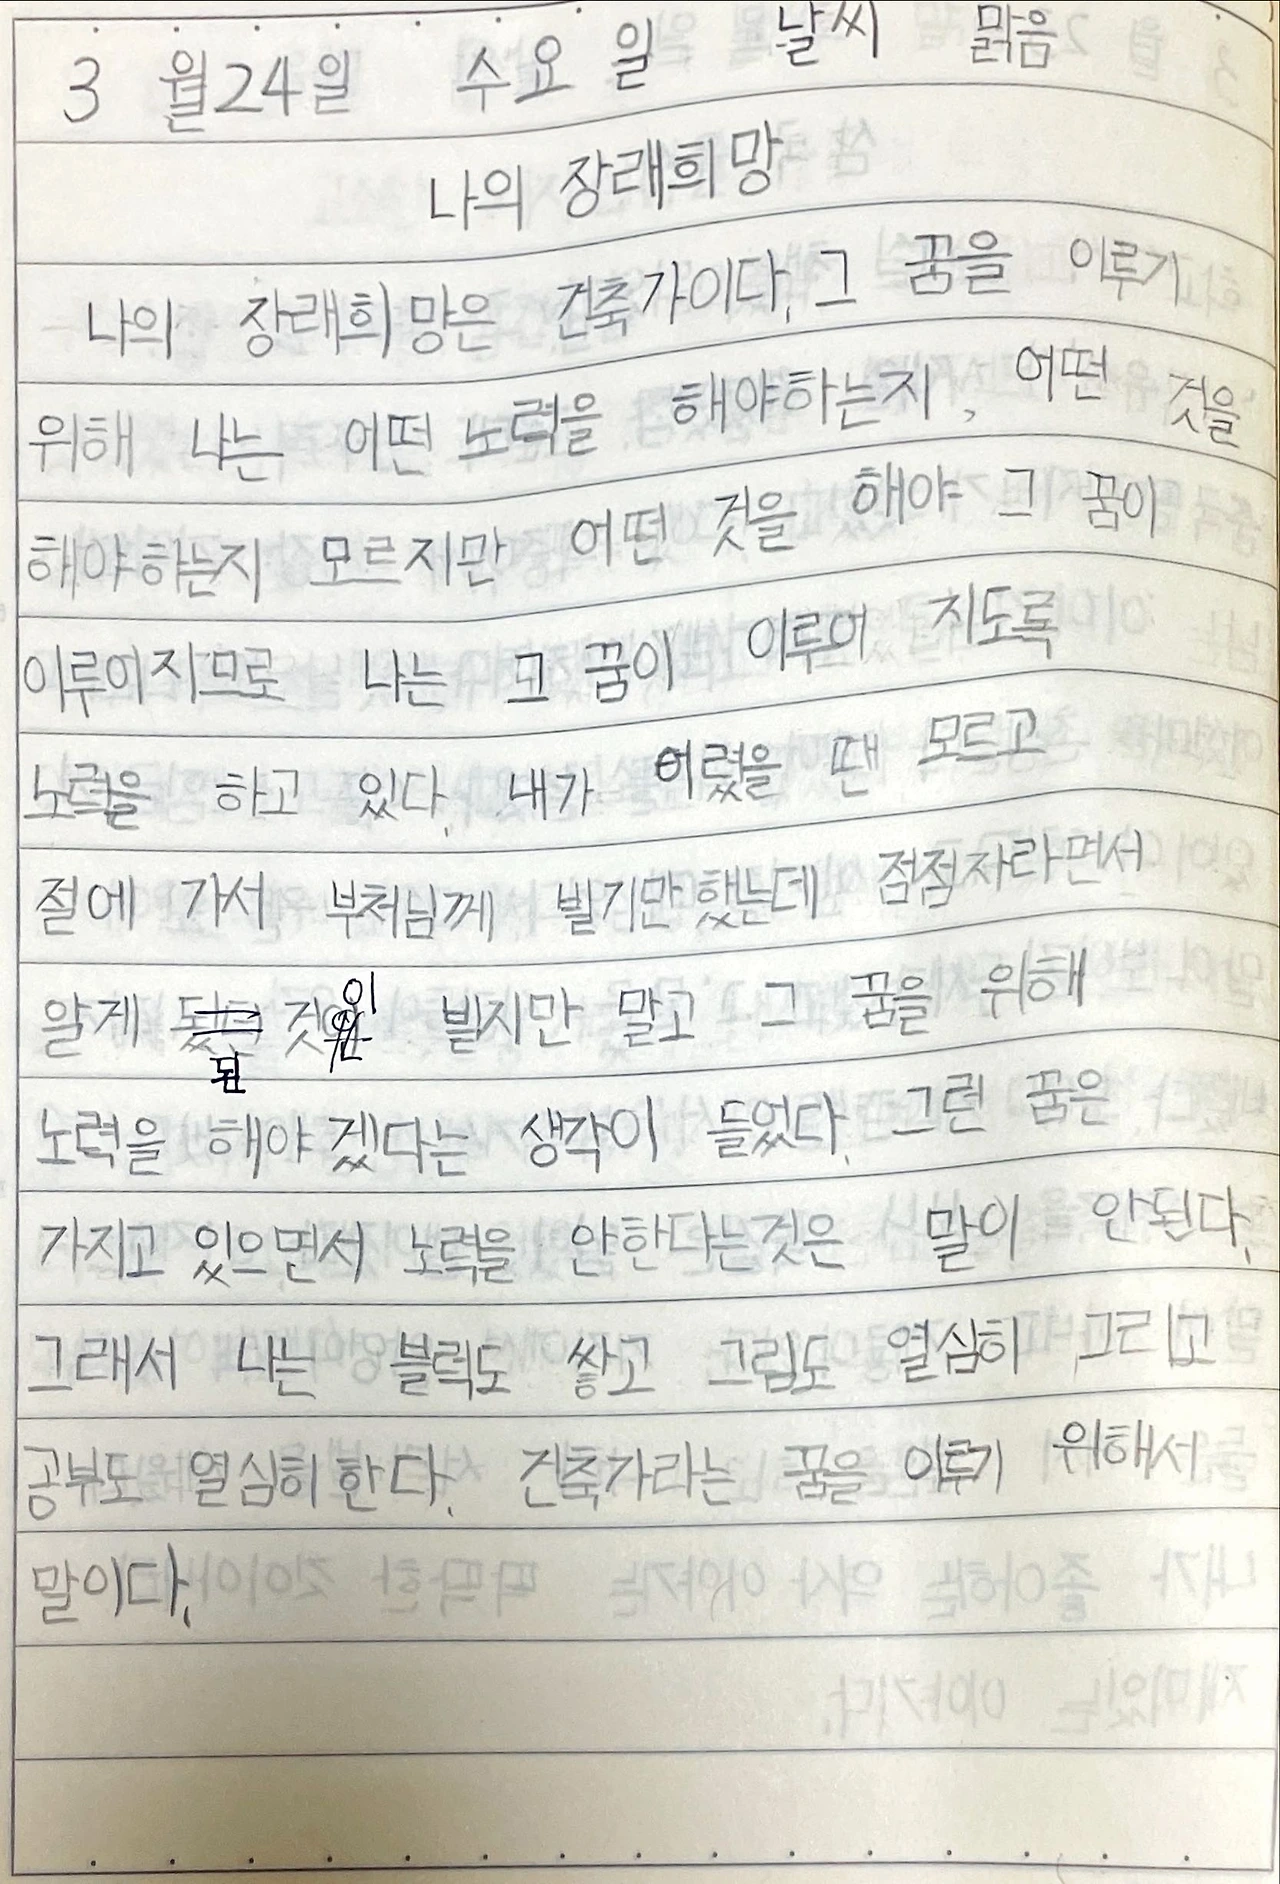 3월 24일 수요일 날씨 맑음
나의 장래희망
나의 장래희망은 건축가이다. 그 꿈을 이루기
위해 나는 어떤 노력을 해야하는지, 어떤 것을
해야하는지 모르지만 어떤 것을 해야 그 꿈이
이루어지므로 나는 그 꿈이 이루어 지도록
노력을 하고 있다. 내가 어렸을 땐 모르고
절에 가서 부처님께 빌기만했는데 점점자라면서
알게 된 것이 빌지만 말고 그 꿈을 위해
노력을 해야겠다는 생각이 들었다. 그런 꿈은
가지고 있으면서 노력을 안한다는것은 말이 안된다.
그래서 나는 블럭도 쌓고 그림도 열심히 그리고
공부도 열심히 한다. 건축가라는 꿈을 이루기 위해서
말이다.